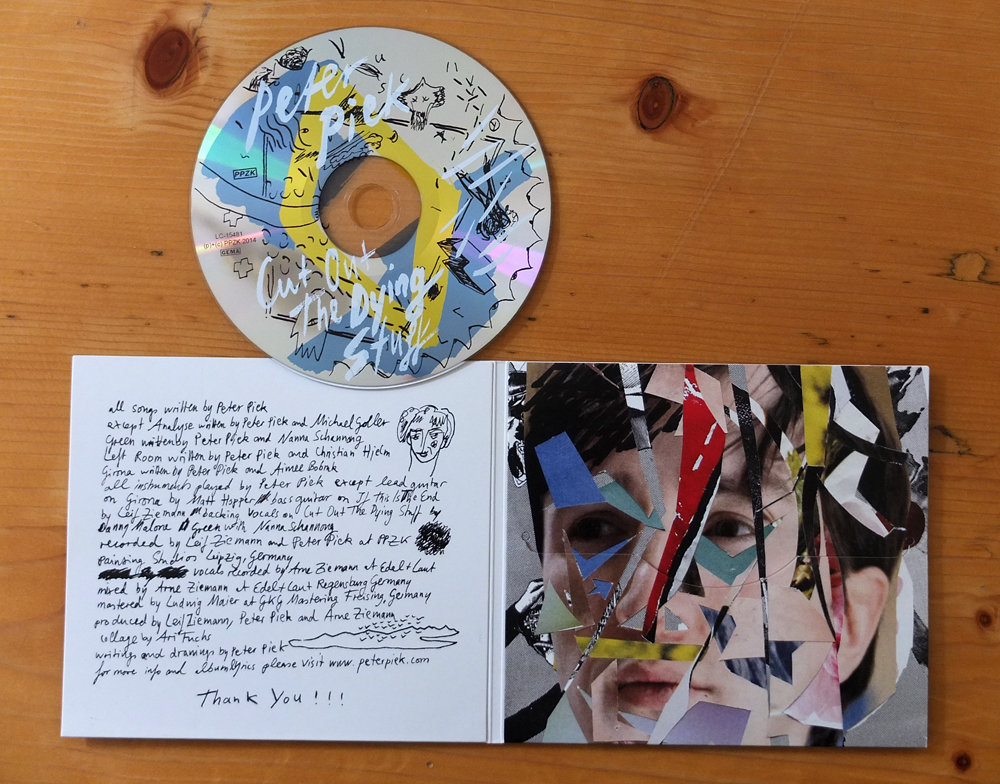 Peter
Piek
PPZK
LC-15481
(p)+(c) PPZK 2014
GEMA
Cut Out
The Dying
Stuff
all songs written by Peter Piek
except Analyse written by Peter Piek and Michael Goller
Green written by Peter Piek and Nanna Schannong
Left Room written by Peter Piek and Christian Hjelm
Girona written by Peter Piek and Aimee Bobruk
all instruments played by Peter Piek except lead guitar
on Girona by Matt Hopper bass guitar on If This Is The End
by Leif Ziemann backing vocals on Cut Out The Dying Stuff by
Danny Malone Green with Nanna Schannong
recorded by Leif Ziemann and Peter Piek at PPZK
Painting Studios Leipzig, Germany
vocals recorded by Arne Ziemann at Edel+Laut
mixed by Arne Ziemann at Edel+Laut Regensburg Germany
mastered by Ludwig Maier at GKG Mastering Freising, Germany
produced by Leif Ziemann, Peter Piek and Arne Ziemann
collage by Ari Fuchs
writings and drawings by Peter Piek
for more info and albumlyrics please visit www.peterpiek.com
Thank You !!!